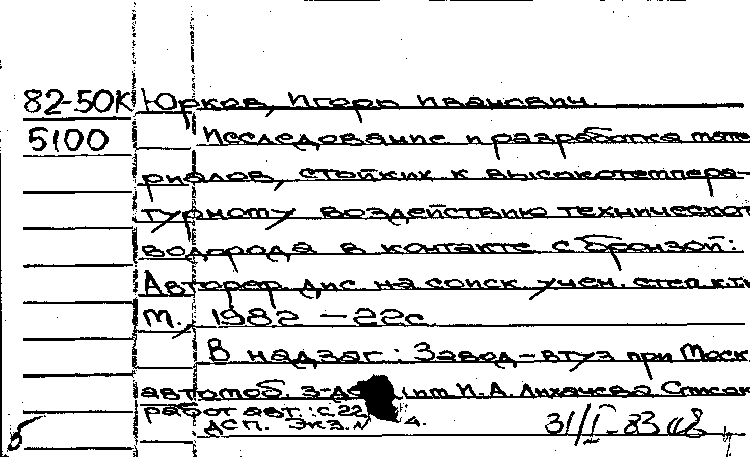 82-50К Юрков, Игорь Иванович.
5100 Исследование и разработка мате
риалов, стойких к высокотемпера-
турному воздействию технического
водорода в контакте с бронзой:
Автореф. дис. на соиск. учен. степ. к.т.н
М., 1982 - 22с.
В надзаг.: Завод-втуз при Моск
автомоб. з-де им И.А. Лихачева Список
работ авт.: с.22
ДСП. Экз. N 4.
31/I-83
б